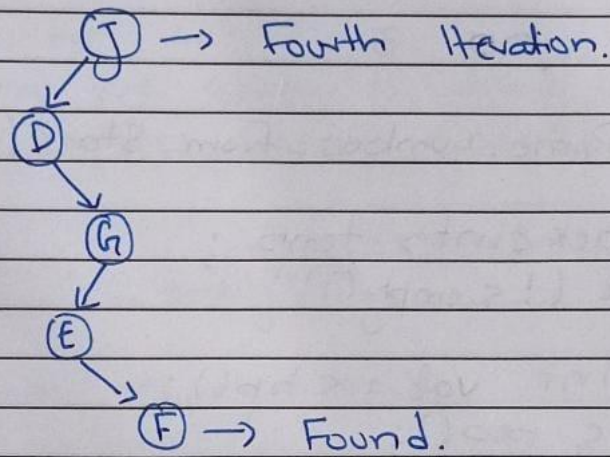 J → Fourth Iteration.
D
G
E
F → Found.